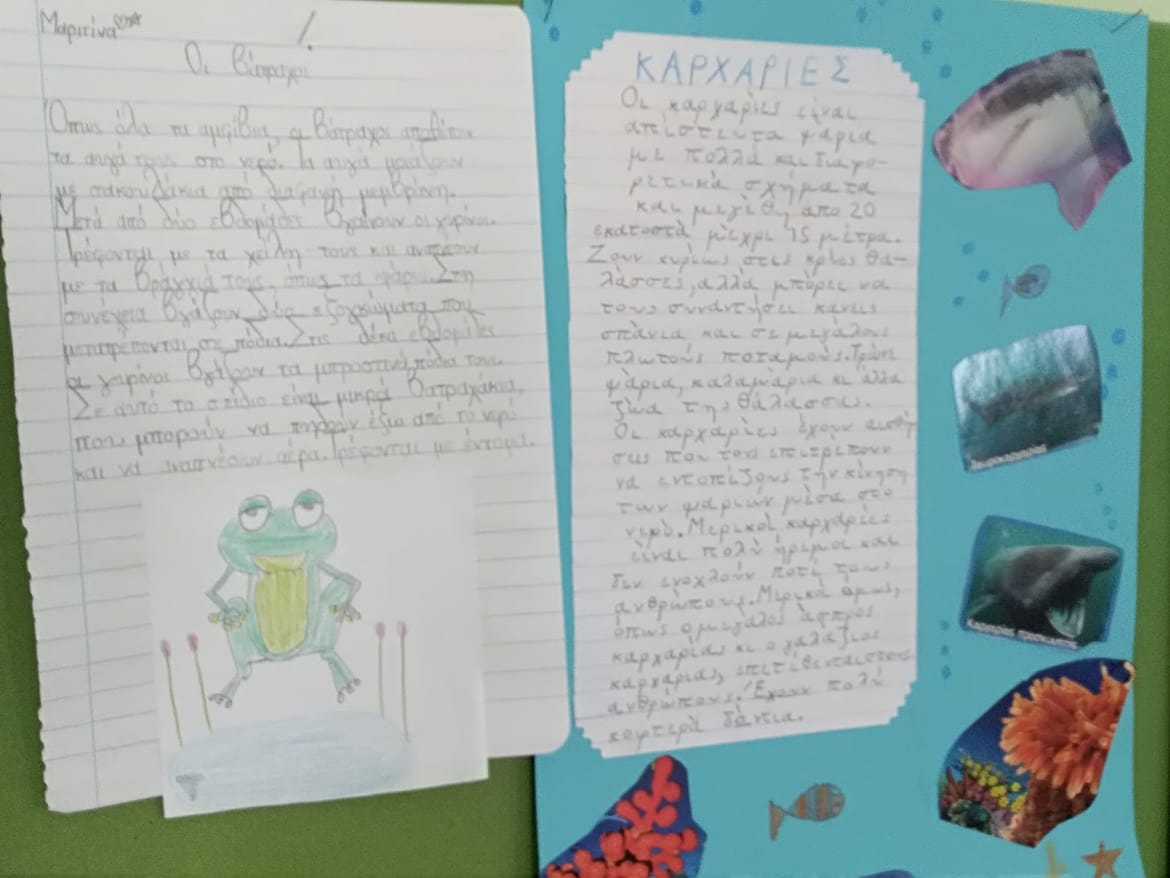 Μαριτίνα
Οι Βάτραχοι
Όπως όλα τα αμφίβια, οι βάτραχοι αποθέτουν
τα αυγά τους στο νερό. Τα αυγά μοιάζουν
με σακουλάκια από διαφανή μεμβράνη.
Μετά από δύο εβδομάδες βγαίνουν οι γυρίνοι.
Τρέφονται με τα χείλη τους και αναπνέουν
με τα βράγχιά τους, όπως τα ψάρια. Στη
συνέχεια βγάζουν δύο εξογκώματα που
μετατρέπονται σε πόδια. Στις δέκα εβδομάδες
οι γυρίνοι βγάζουν τα μπροστινά πόδια τους.
Σε αυτό το στάδιο είναι μικρά βατραχάκια,
που μπορούν να πηδούν έξω από το νερό
και να αναπνέουν αέρα. Τρέφονται με έντομα.
ΚΑΡΧΑΡΙΕΣ
Οι καρχαρίες είναι
απίστευτα ψάρια
με πολλά και διαφο-
ρετικά σχήματα
και μεγέθη, απο 20
εκατοστά μέχρι 15 μέτρα.
Ζουν κυρίως στις κρύες θα-
λάσσες, αλλά μπόρει να
τους συναντήσει κανείς
σπάνια και σε μεγάλους
πλωτούς ποταμούς. Τρώνε
ψάρια, καλαμάρια κι άλλα
ζώα της θάλασσας.
Οι καρχαρίες έχουν αισθή
σεις που τους επιτρέπουν
να εντοπίζουν την κίνηση
των ψαριών μέσα στο
νερό. Μερικοί καρχαρίες
είναι πολύ ήρεμοι και
δεν ενοχλούν ποτέ τους
ανθρώπους. Μερικοί όμως,
όπως ο μεγάλος άσπρος
καρχαρίας κι ο γαλάζιος
καρχαρίας, επιτίθενται στους
ανθρώπους. Έχουν πολύ
κοφτερά δόντια.